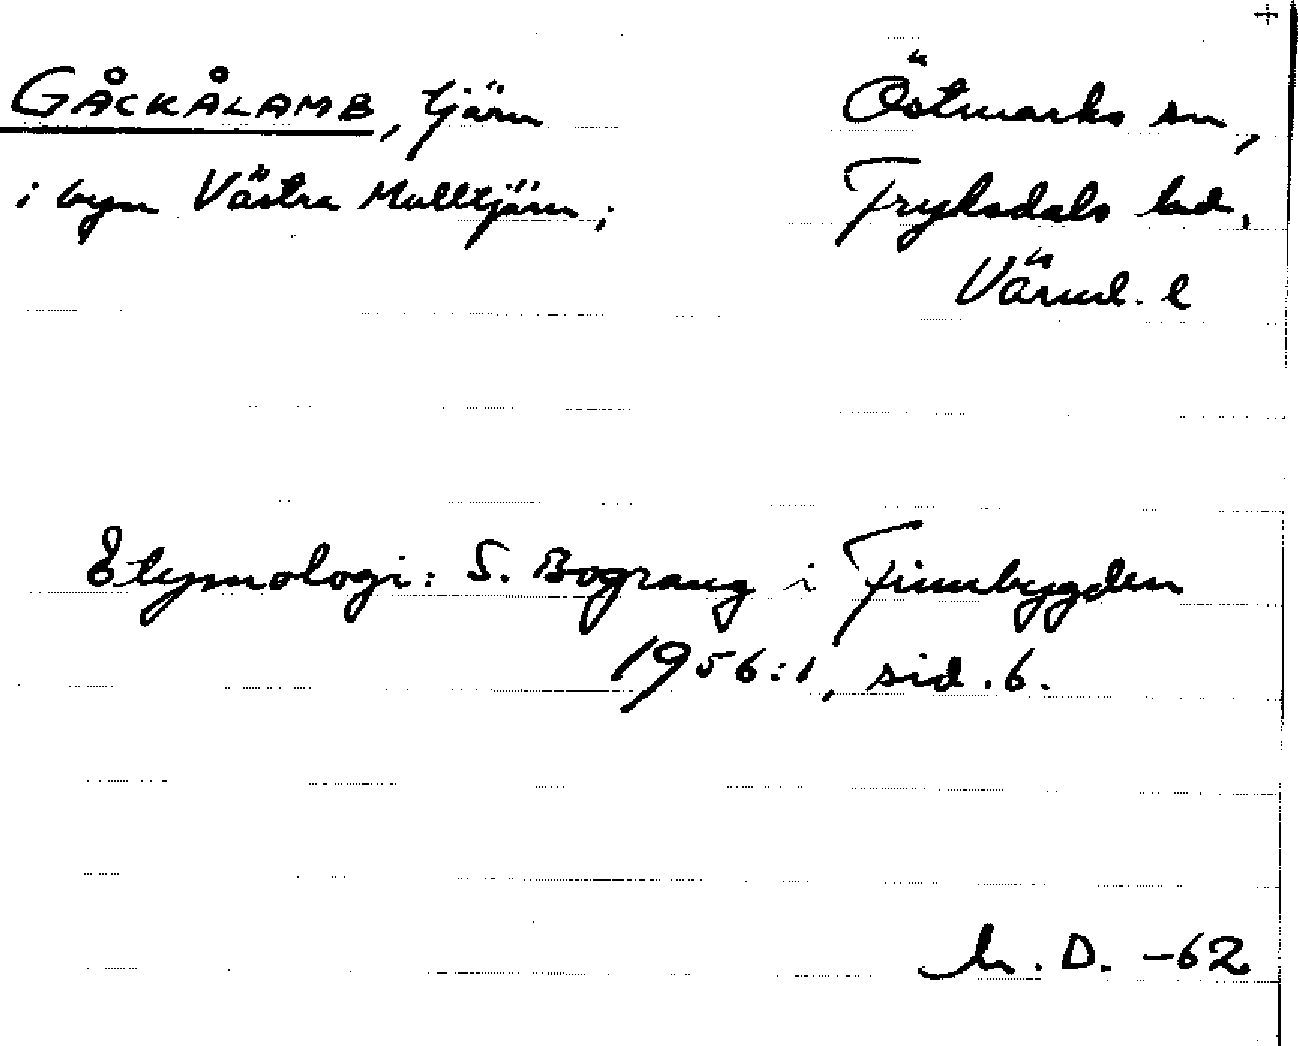 GÅCKÅLAMB, tjärn
i byn Västra Mulltjärn;
Östmarks sn,
Fryksdals hd,
Värml. l
Etymologi: S. Bograng i Finnbygden
1956:1, sid. 6.
D. -62